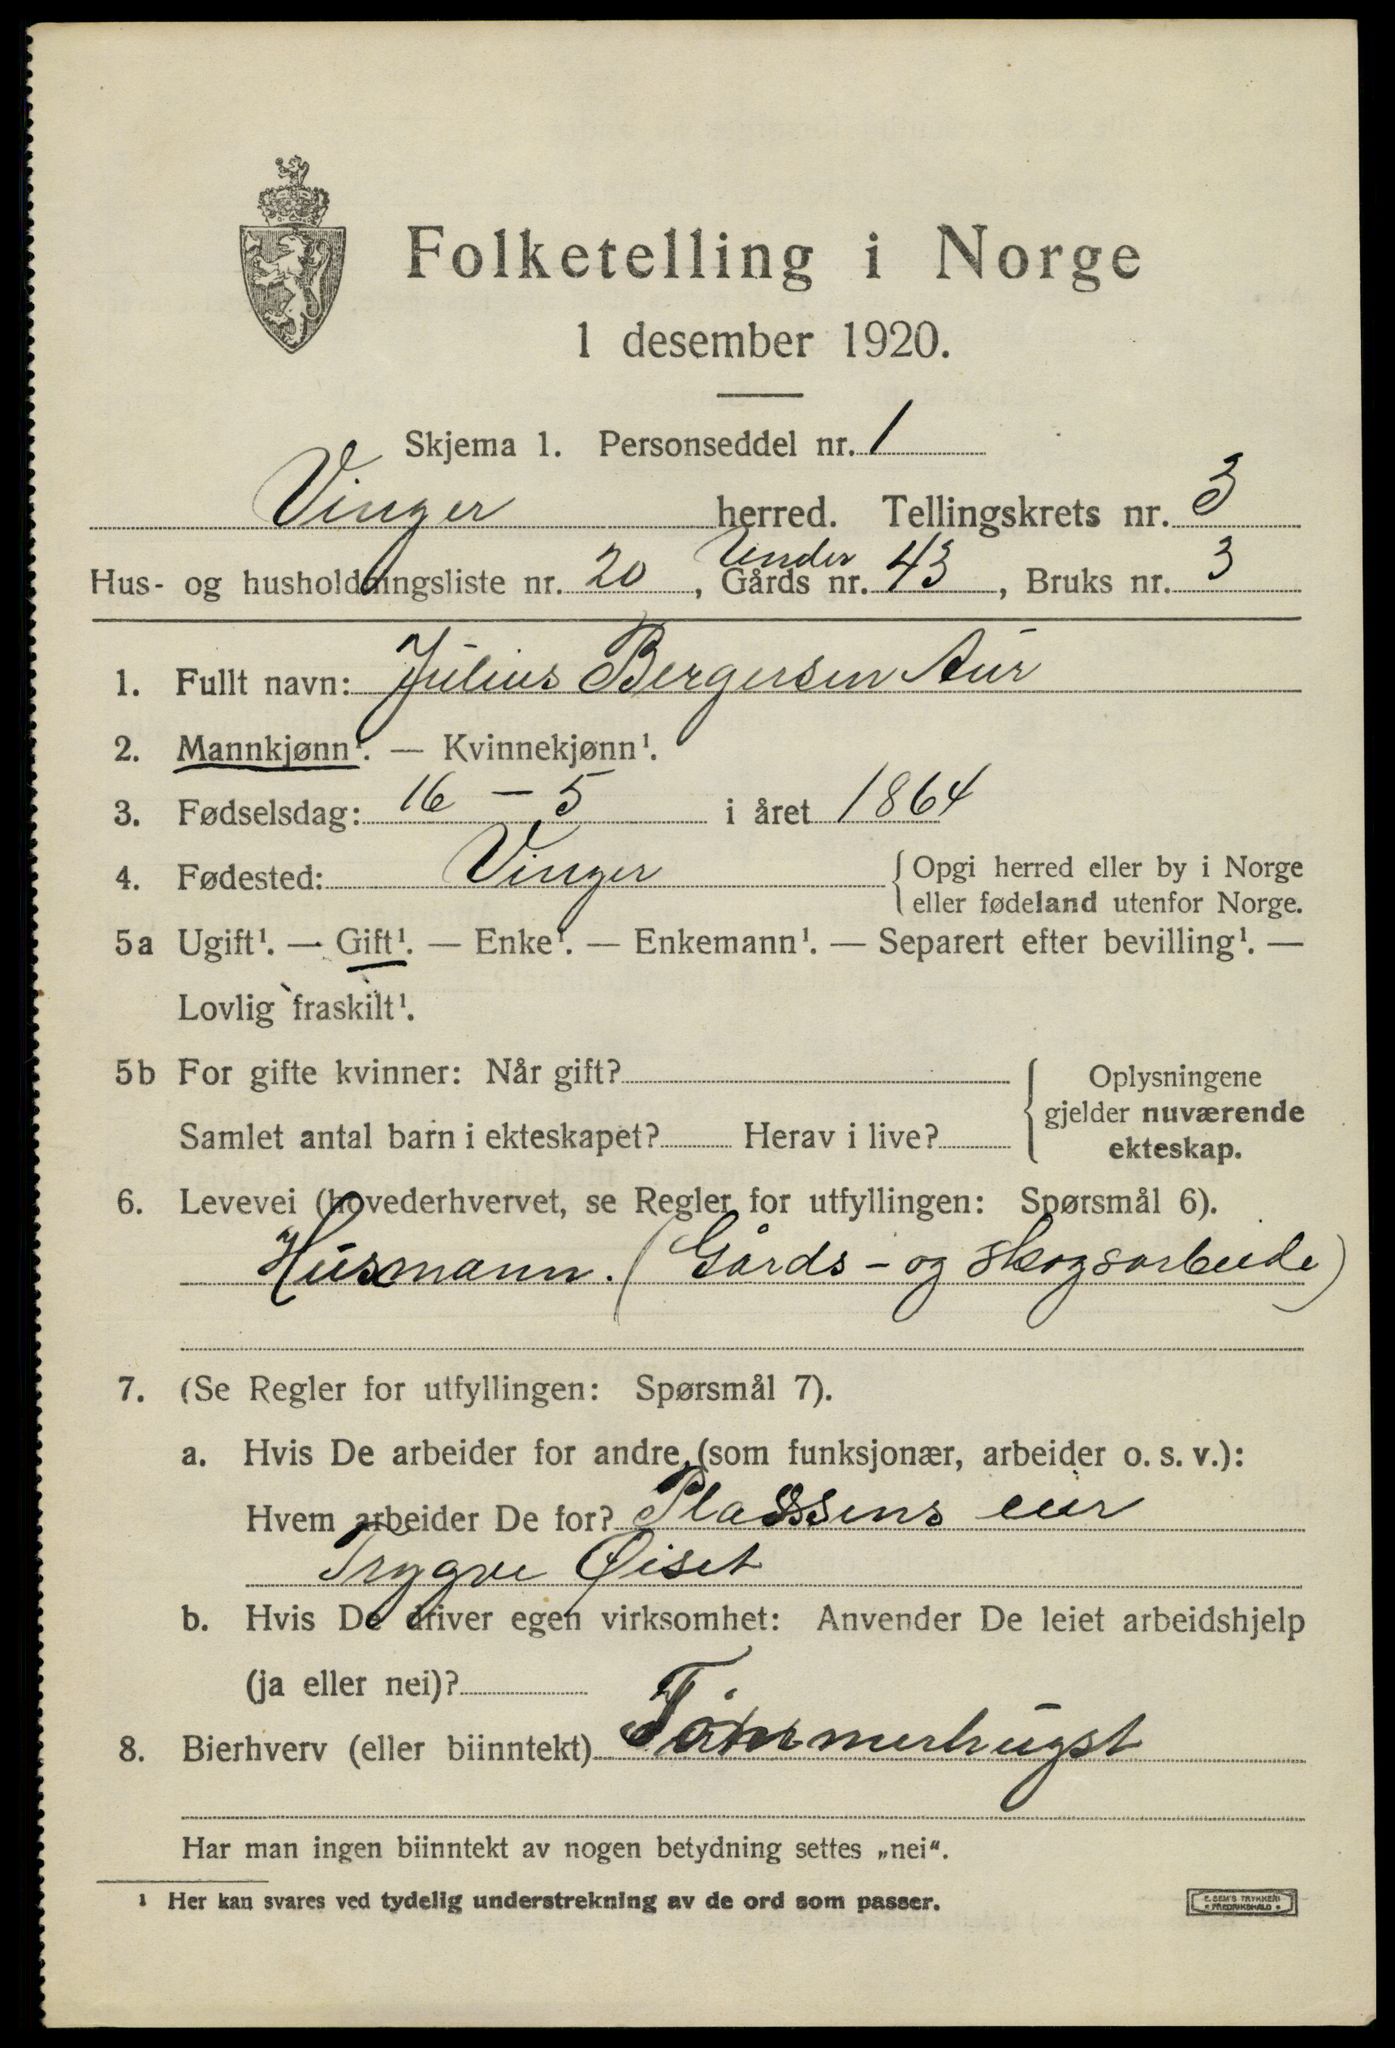 Folketelling i Norge
1 desember 1920.
Skjema 1. Personseddel nr. 1
Vinger herred. Tellingskrets nr. 3
Under
Hus- og husholdningsliste nr. 20, Gårds nr. 43, Bruks nr. 3
1. Fullt navn: Julius Bergersen Aur
2. Mannkjønn¹. — Kvinnekjønn¹.
3. Fødselsdag: 16 - 5 i året 1864
4. Fødested: Vinger { Opgi herred eller by i Norge
eller fødeland utenfor Norge.
5a Ugift¹. — Gift¹. — Enke¹. — Enkemann¹. — Separert efter bevilling¹. —
Lovlig fraskilt¹.
5b For gifte kvinner: Når gift? { Oplysningene
gjelder nuværende
Samlet antal barn i ekteskapet? Herav i live?
ekteskap.
6. Levevei (hovederhvervet, se Regler for utfyllingen: Spørsmål 6).
Husmann. (Gårds- og skogsarbeide)
7. (Se Regler for utfyllingen: Spørsmål 7).
a. Hvis De arbeider for andre (som funksjonær, arbeider o. s. v.):
Hvem arbeider De for? Plassens eier
Trygve Øiset
b. Hvis De driver egen virksomhet: Anvender De leiet arbeidshjelp
(ja eller nei)?
8. Bierhverv (eller biinntekt) Tømmerhugst
Har man ingen biinntekt av nogen betydning settes „nei“.
¹ Her kan svares ved tydelig understrekning av de ord som passer.
E. SEM'S TRYKKERI
FREDRIKSHALD